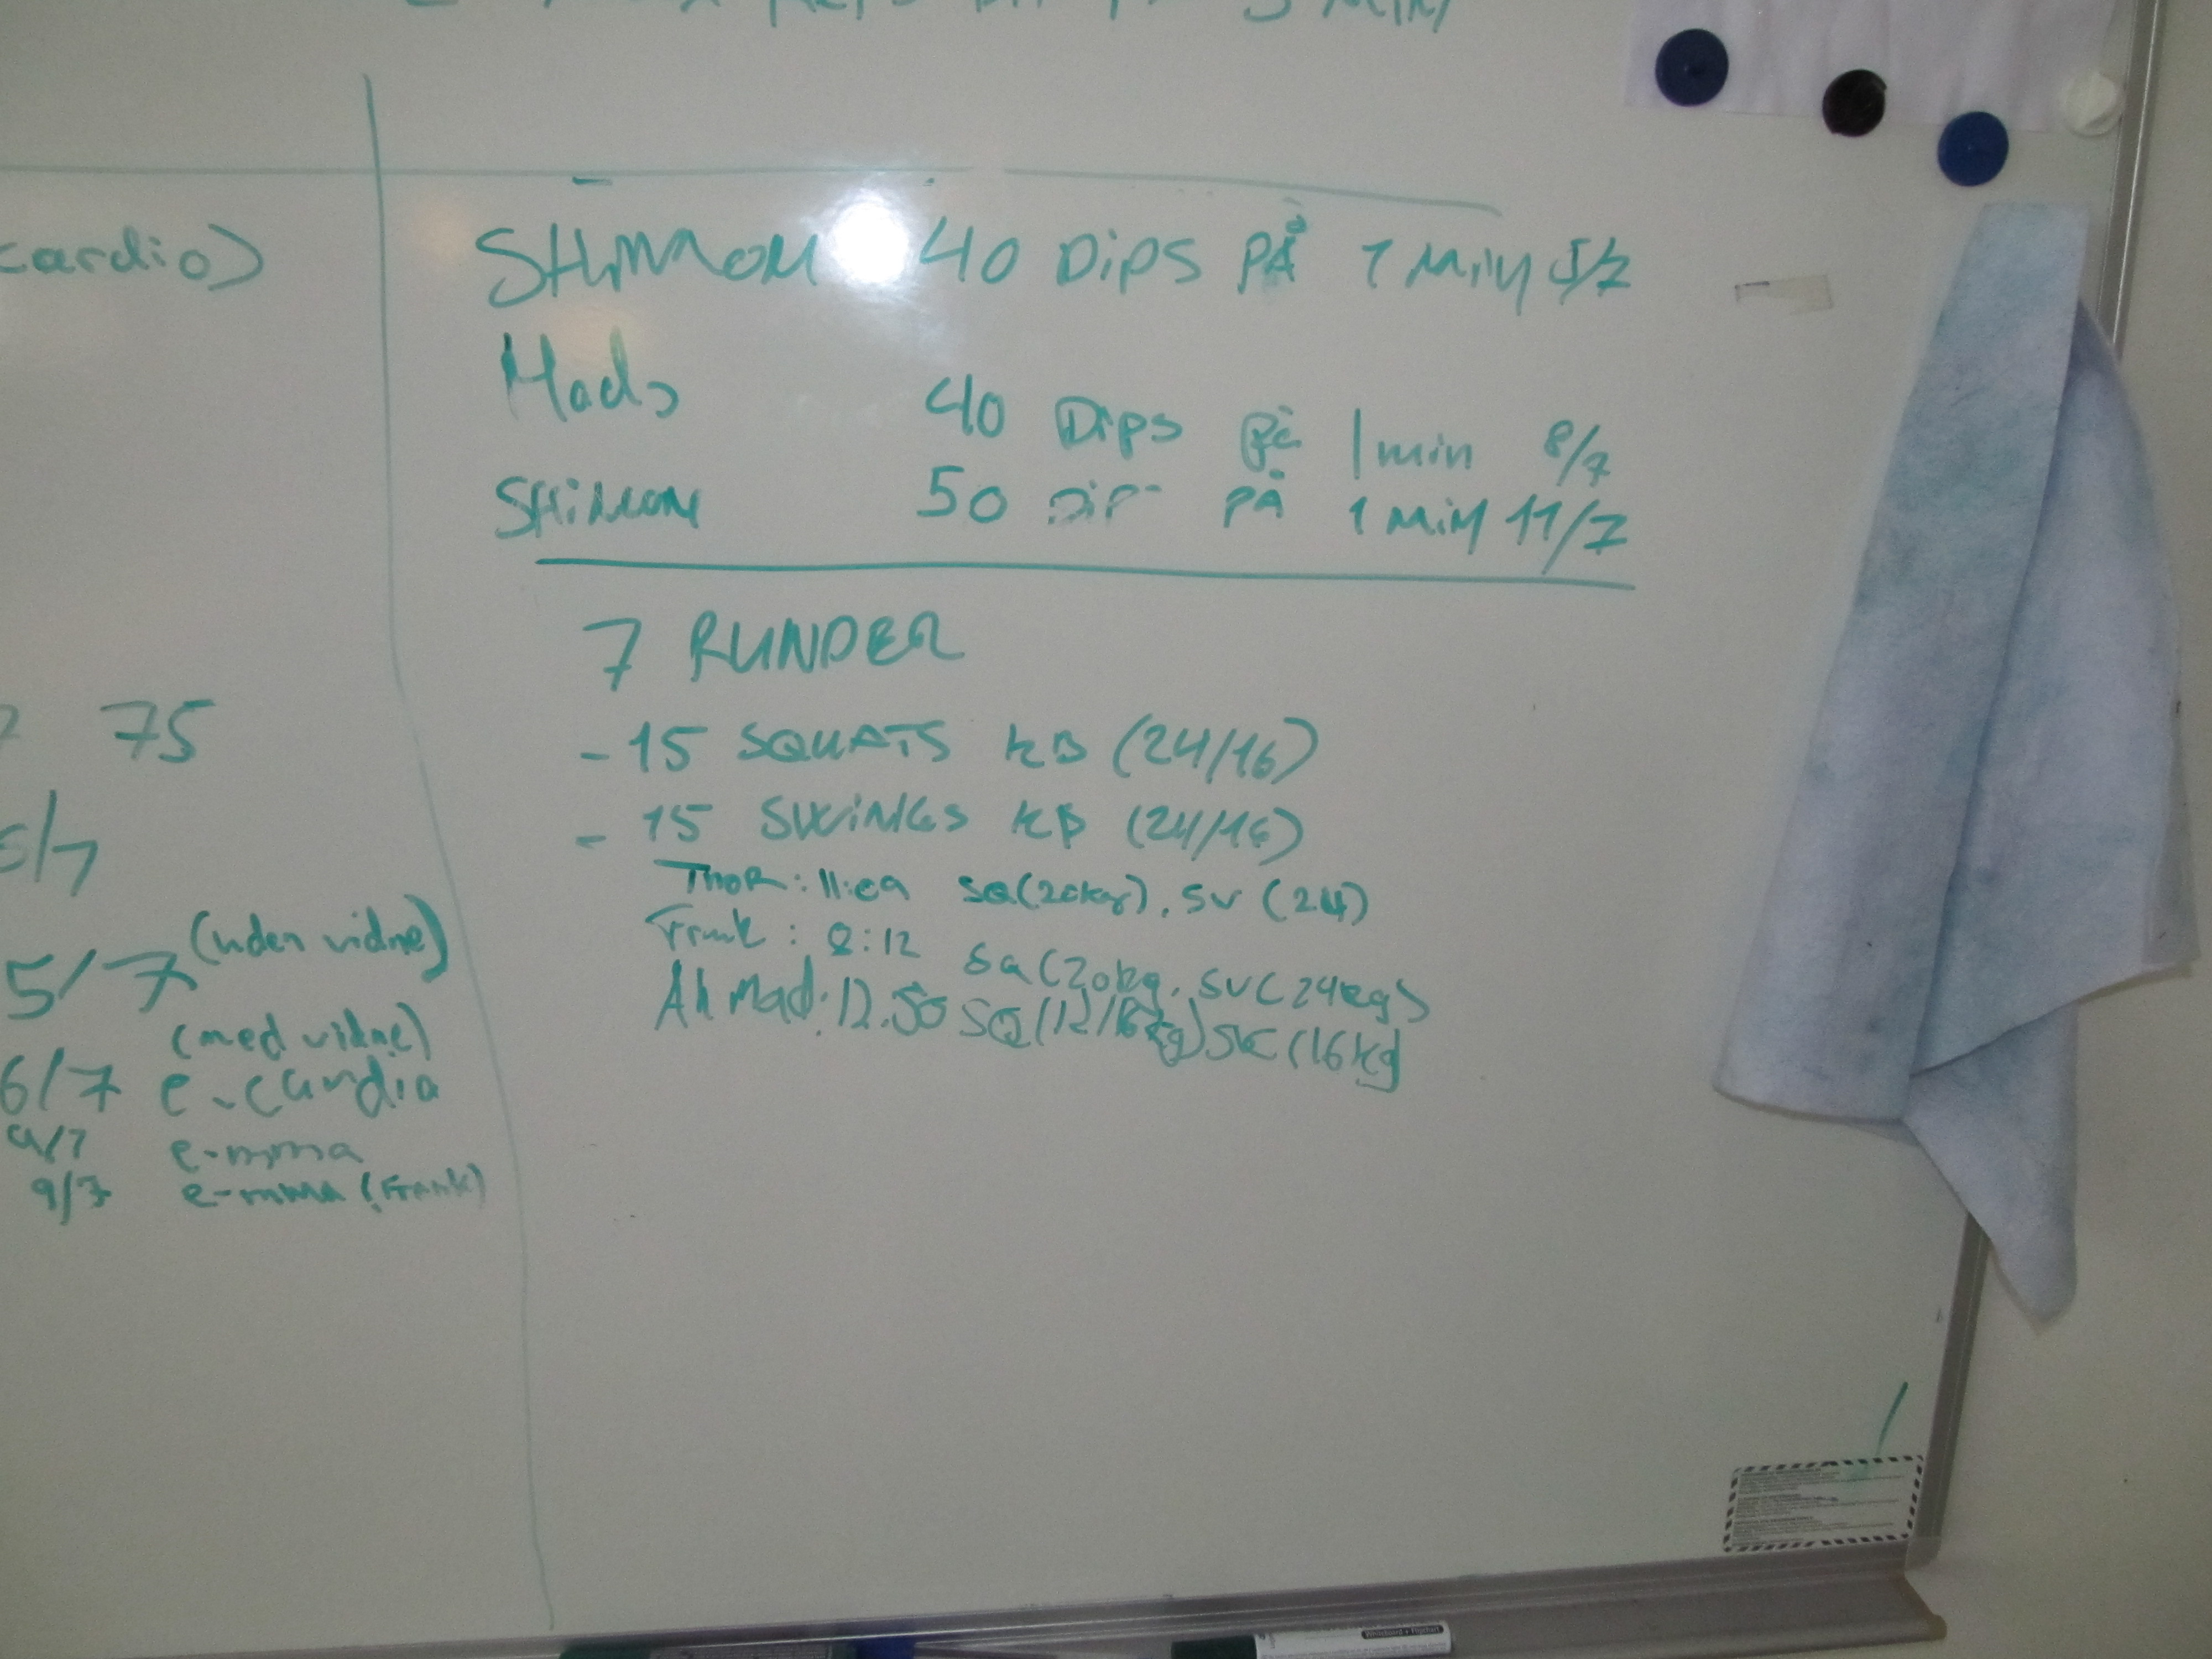 5 MIN
cardio)
75
5/7 (uden vidne)
(med vidne)
6/7 e-cardia
9/7 e-mma
9/7 e-mma (Frank)
SHIMMON 40 DiPS PÅ 1 MiN 5/7
Mads 40 Dips på 1 min 8/7
SHiMON 50 DiP PÅ 1 MiN 11/7
7 RUNDER
- 15 SQUATS KB (24/16)
- 15 SWiNGS KB (24/16)
THOR: 11:09 SQ(20kg), SV (24)
Frank: 8:12 SQ(20kg, SV(24kg)
Ahmad: 12.50 SQ(12/16kg) SV (16kg
Whiteboard + Flipchart